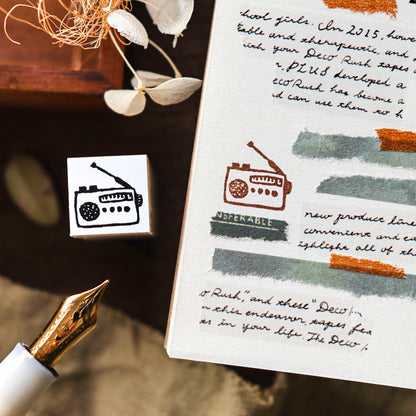 school girls. In 2015, howe
table and therapeutic, and
ich your Deco Rush tapes
, PLUS developed a
eco Rush has become a
d can use them to
NSFERABLE
new product line
convenient and ea
ighlight all of th
o Rush", and these "Deco
this endeavor, tapes fea
es in your life. The Deco